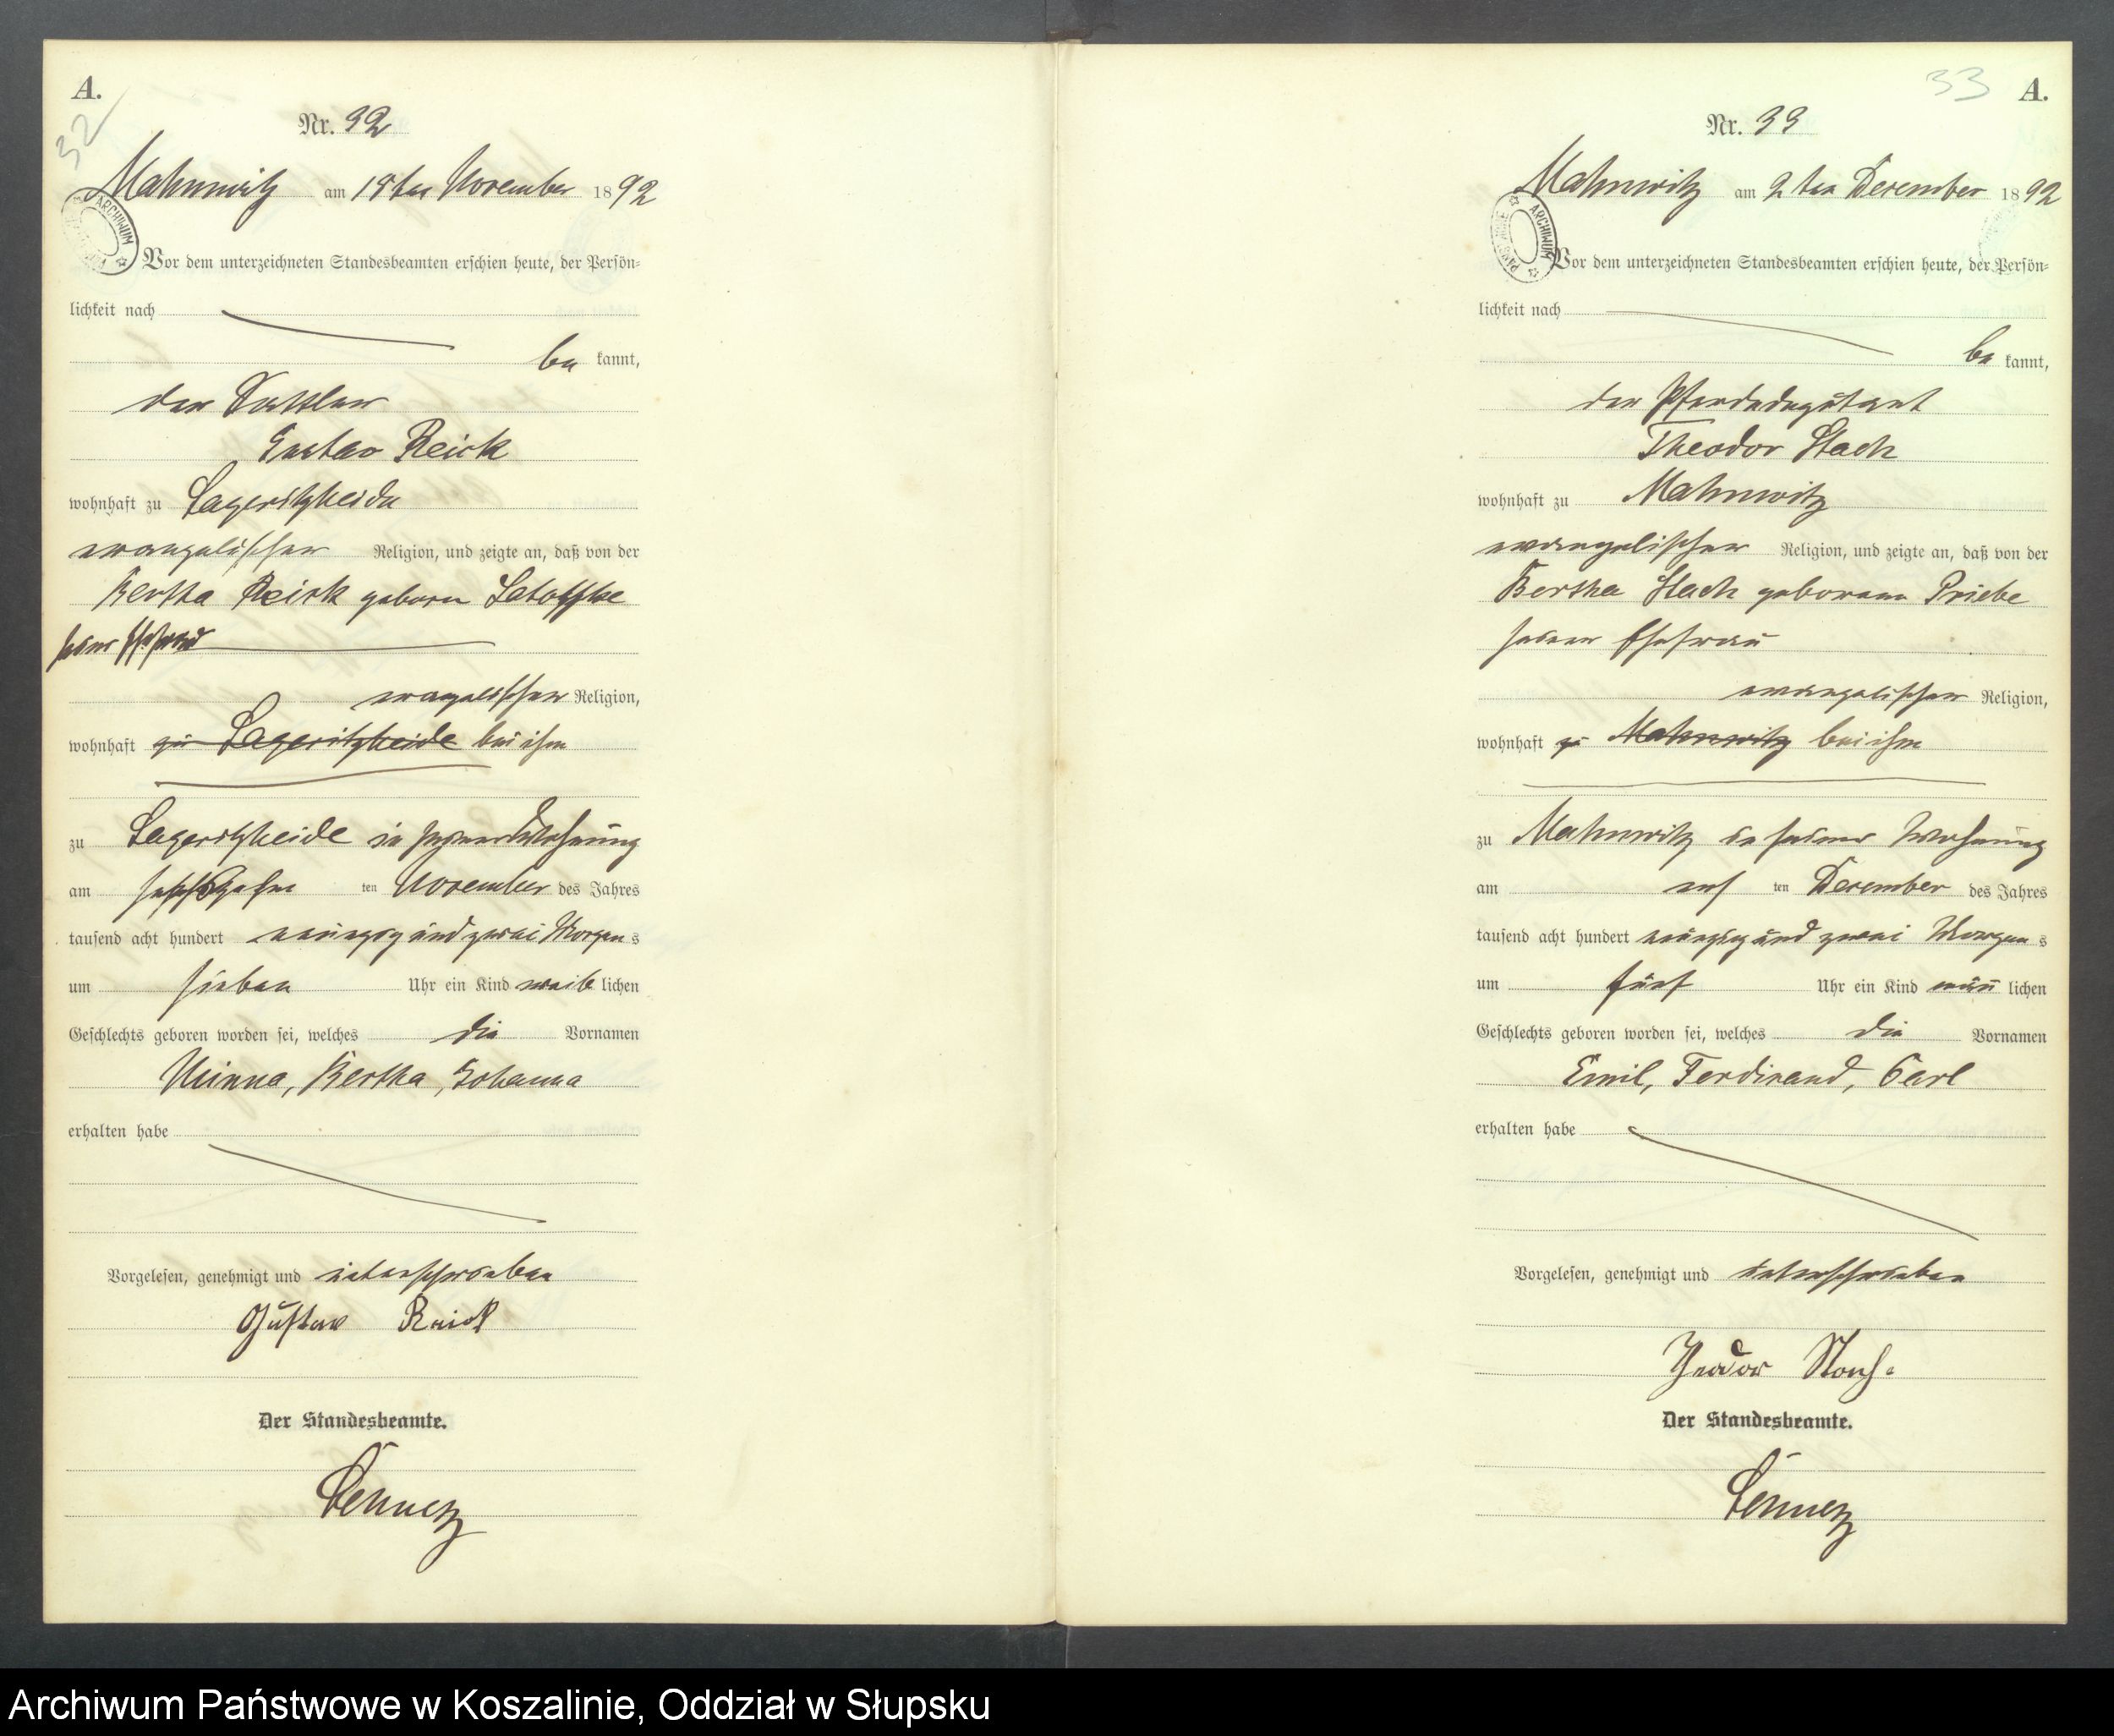 A.
32
Nr. 32
Mahnwitz am 18ten November 1892
ARCHIWUM
Vor dem unterzeichneten Standesbeamten erschien heute, der Persön-
lichkeit nach
be kannt,
der Sattler
Gustav Reick
wohnhaft zu Lageritzheide
evangelischer Religion, und zeigte an, daß von der
Bertha Reick geboren
seiner Ehefrau
evangelischer Religion,
wohnhaft zu Lageritzheide bei ihm
zu Lageritzheide in seiner Wohnung
am sechszehn ten November des Jahres
tausend acht hundert neunzig und zwei Morgens
um sieben Uhr ein Kind weib lichen
Geschlechts geboren worden sei, welches die Vornamen
Minna, Bertha, Johanna
erhalten habe
Vorgelesen, genehmigt und unterschrieben
Gustav Reick
Der Standesbeamte.
33 A.
Nr. 33
Mahnwitz am 2ten Dezember 1892
ARCHIWUM
Vor dem unterzeichneten Standesbeamten erschien heute, der Persön-
lichkeit nach
be kannt,
der
Theodor Stach
wohnhaft zu Mahnwitz
evangelischer Religion, und zeigte an, daß von der
Bertha Stach geborene Priebe
seiner Ehefrau
evangelischer Religion,
wohnhaft zu Mahnwitz bei ihm
zu Mahnwitz in seiner Wohnung
am ersten Dezember des Jahres
tausend acht hundert neunzig und zwei Morgens
um fünf Uhr ein Kind männ lichen
Geschlechts geboren worden sei, welches die Vornamen
Emil, Ferdinand, Carl
erhalten habe
Vorgelesen, genehmigt und unterschrieben
Theodor Stach.
Der Standesbeamte.
Archiwum Państwowe w Koszalinie, Oddział w Słupsku